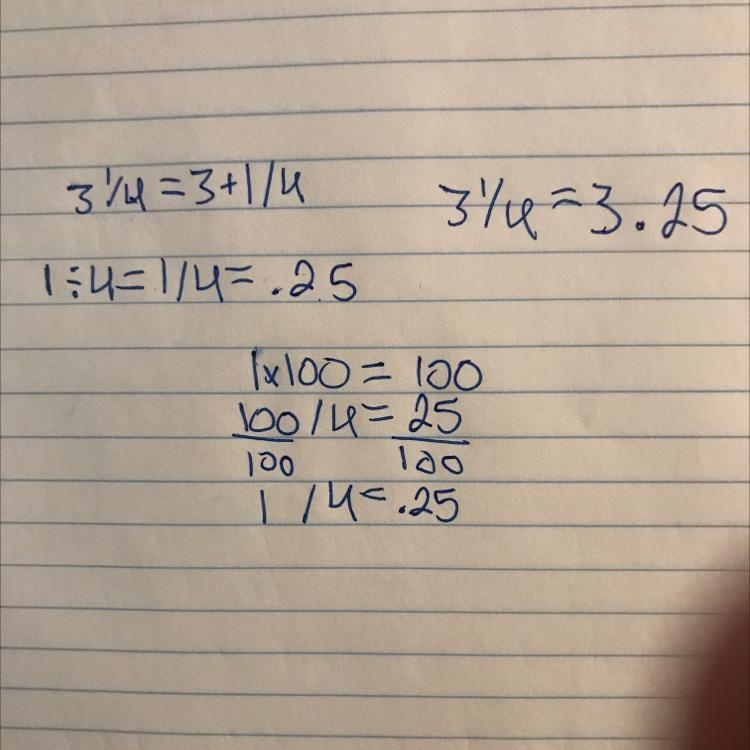 3 1/4 = 3 + 1/4
3 1/4 = 3.25
1 ÷ 4 = 1/4 = .25
1x100 = 100
100 / 4 = 25
100 100
1 / 4 = .25